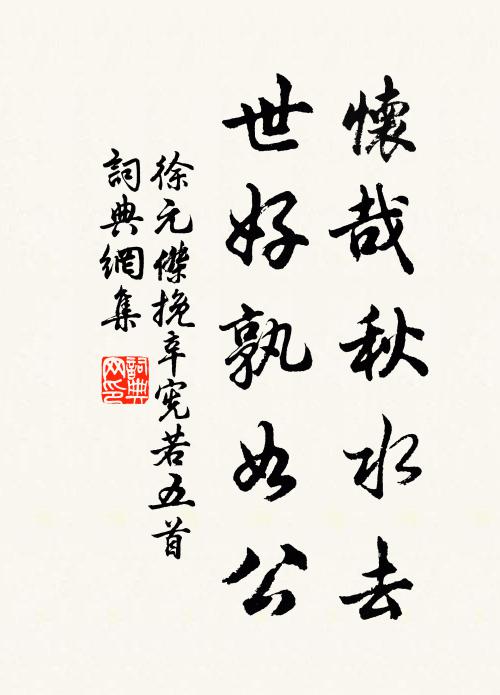 懷哉秋水去
世好孰如公
徐元傑挽辛宪若五首
詞典網集
詞典网印